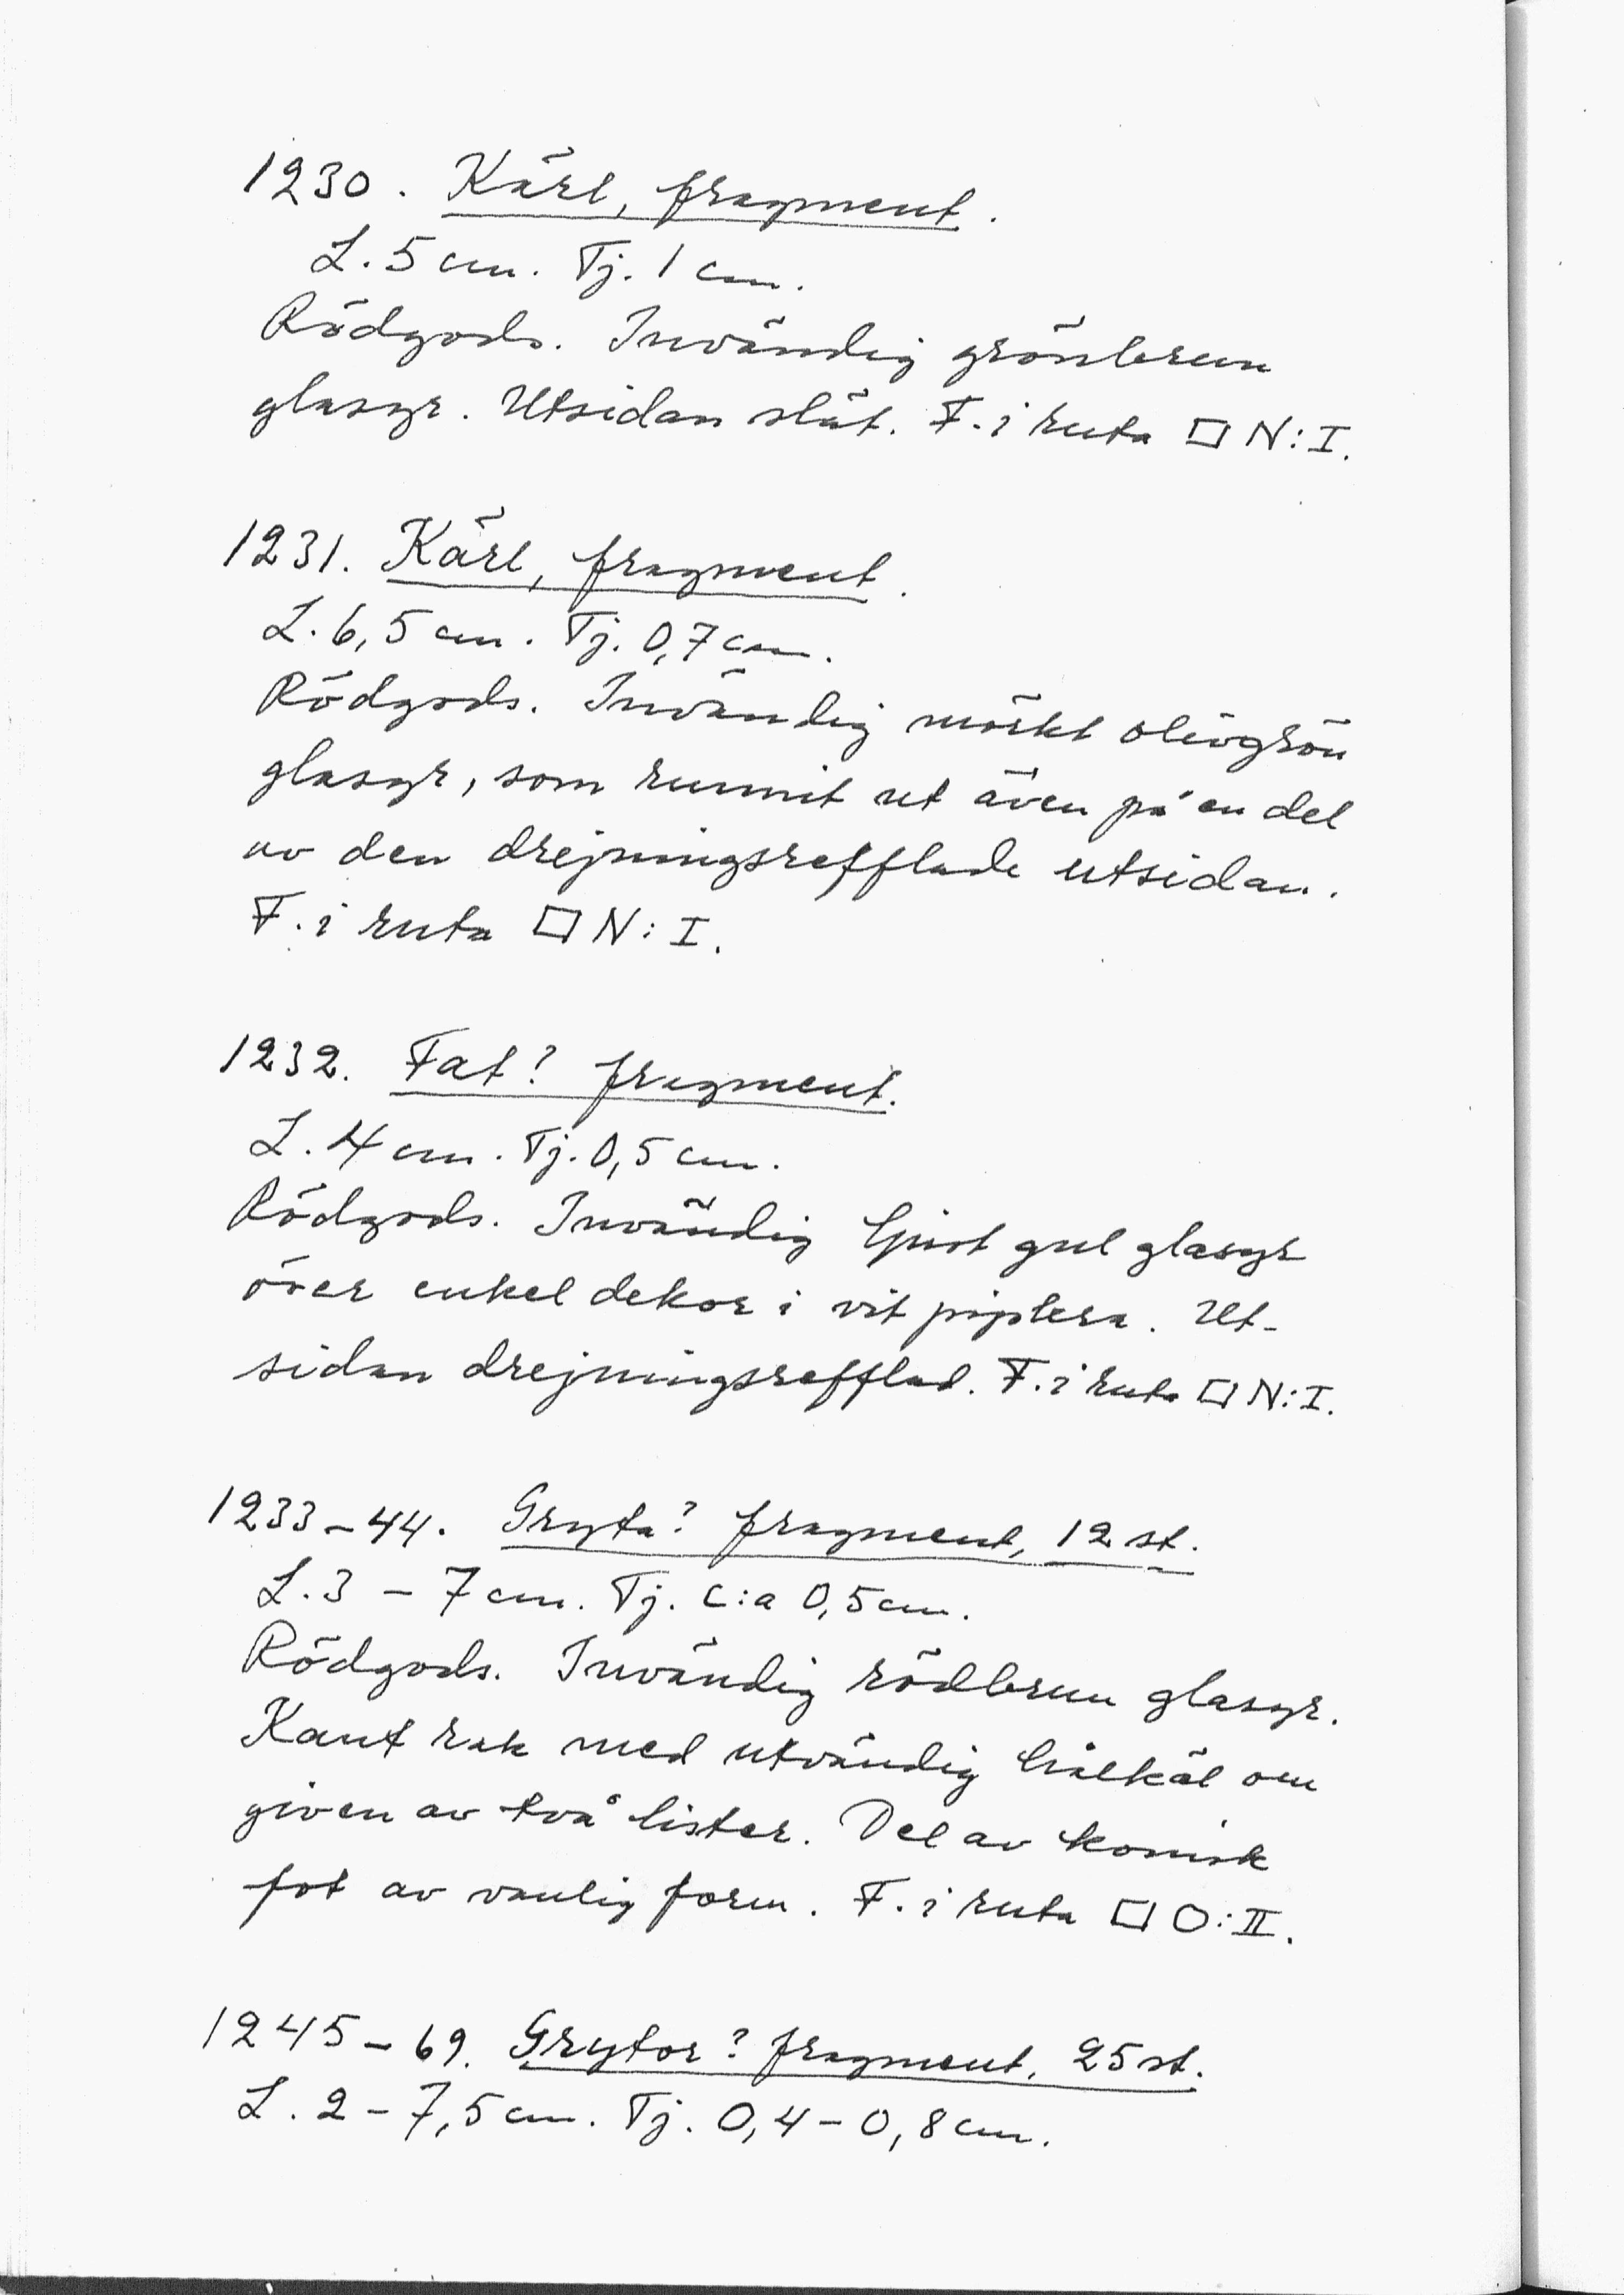 1230. Kärl, fragment.
L. 5 cm. Tj. 1 cm.
Rödgods. Invändig grönbrun
glasyr. Utsidan slät. F. i ruta □ N: I.
1231. Kärl, fragment.
L. 6,5 cm. Tj. 0,7 cm.
Rödgods. Invändig mörkt olivgrön
glasyr, som runnit ut även på en del
av den drejningsrefflade utsidan.
F. i ruta □ N: I.
1232. Fat? fragment.
L. 4 cm. Tj. 0,5 cm.
Rödgods. Invändig ljust gul glasyr
över enkel dekor i vit piplera. Ut-
sidan drejningsrefflad. F. i ruta □ N: I.
1233-44. Gryta? fragment, 12 st.
L. 3 - 7 cm. Tj. c:a 0,5 cm.
Rödgods. Invändig rödbrun glasyr.
Kant rak med utvändig hålkäl om
given av två lister. Del av konisk
fot av vanlig form. F. i ruta □ O: II.
1245-69. Grytor? fragment, 25 st.
L. 2 - 7,5 cm. Tj. 0,4 - 0,8 cm.